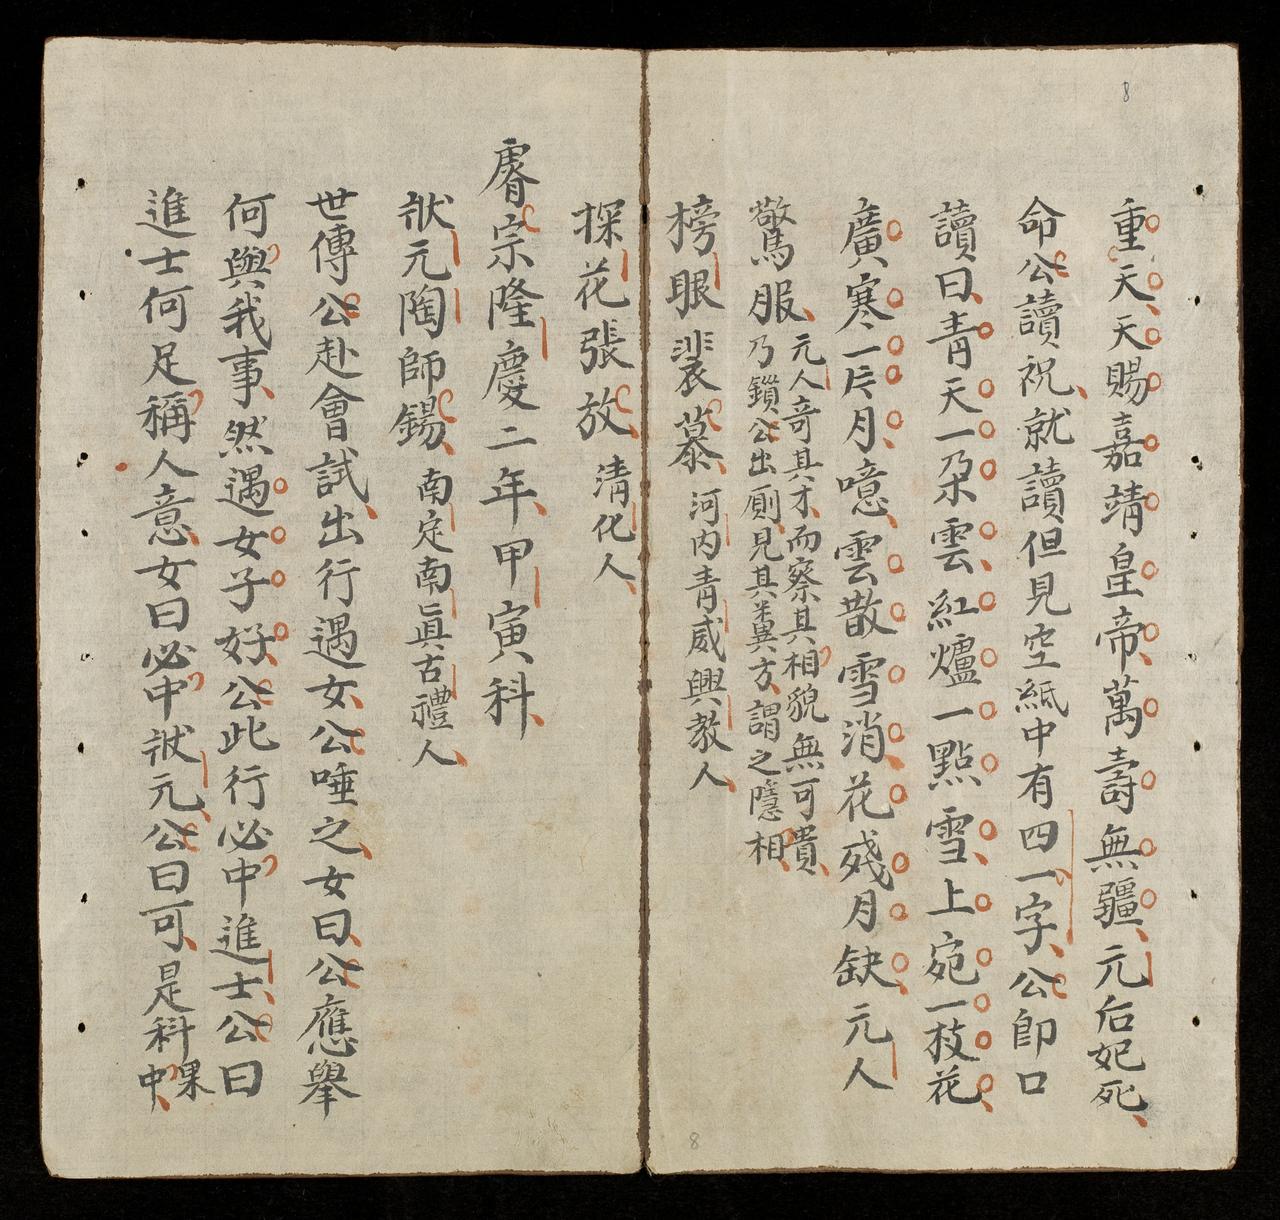 8
重天天賜嘉靖皇帝萬壽無疆元后妃死
命公讀祝就讀但見空紙中有四一字公卽口
讀曰青天一朶雲紅爐一點雪上宛一枝花
廣寒一片月噫雲散雪消花殘月缺元人
驚服元人竒其才而察其相貌無可貴
乃鎖公出厠見其糞方謂之隱相
榜眼裴慕河内青威興教人
探花張放清化人
睿宗隆慶二年甲寅科
狀元陶師錫南定南眞古禮人
世傳公赴會試出行遇女公唾之女曰公應舉
何與我事然遇女子好公此行必中進士公曰
進士何足稱人意女曰必中狀元公曰可是科果
中
8